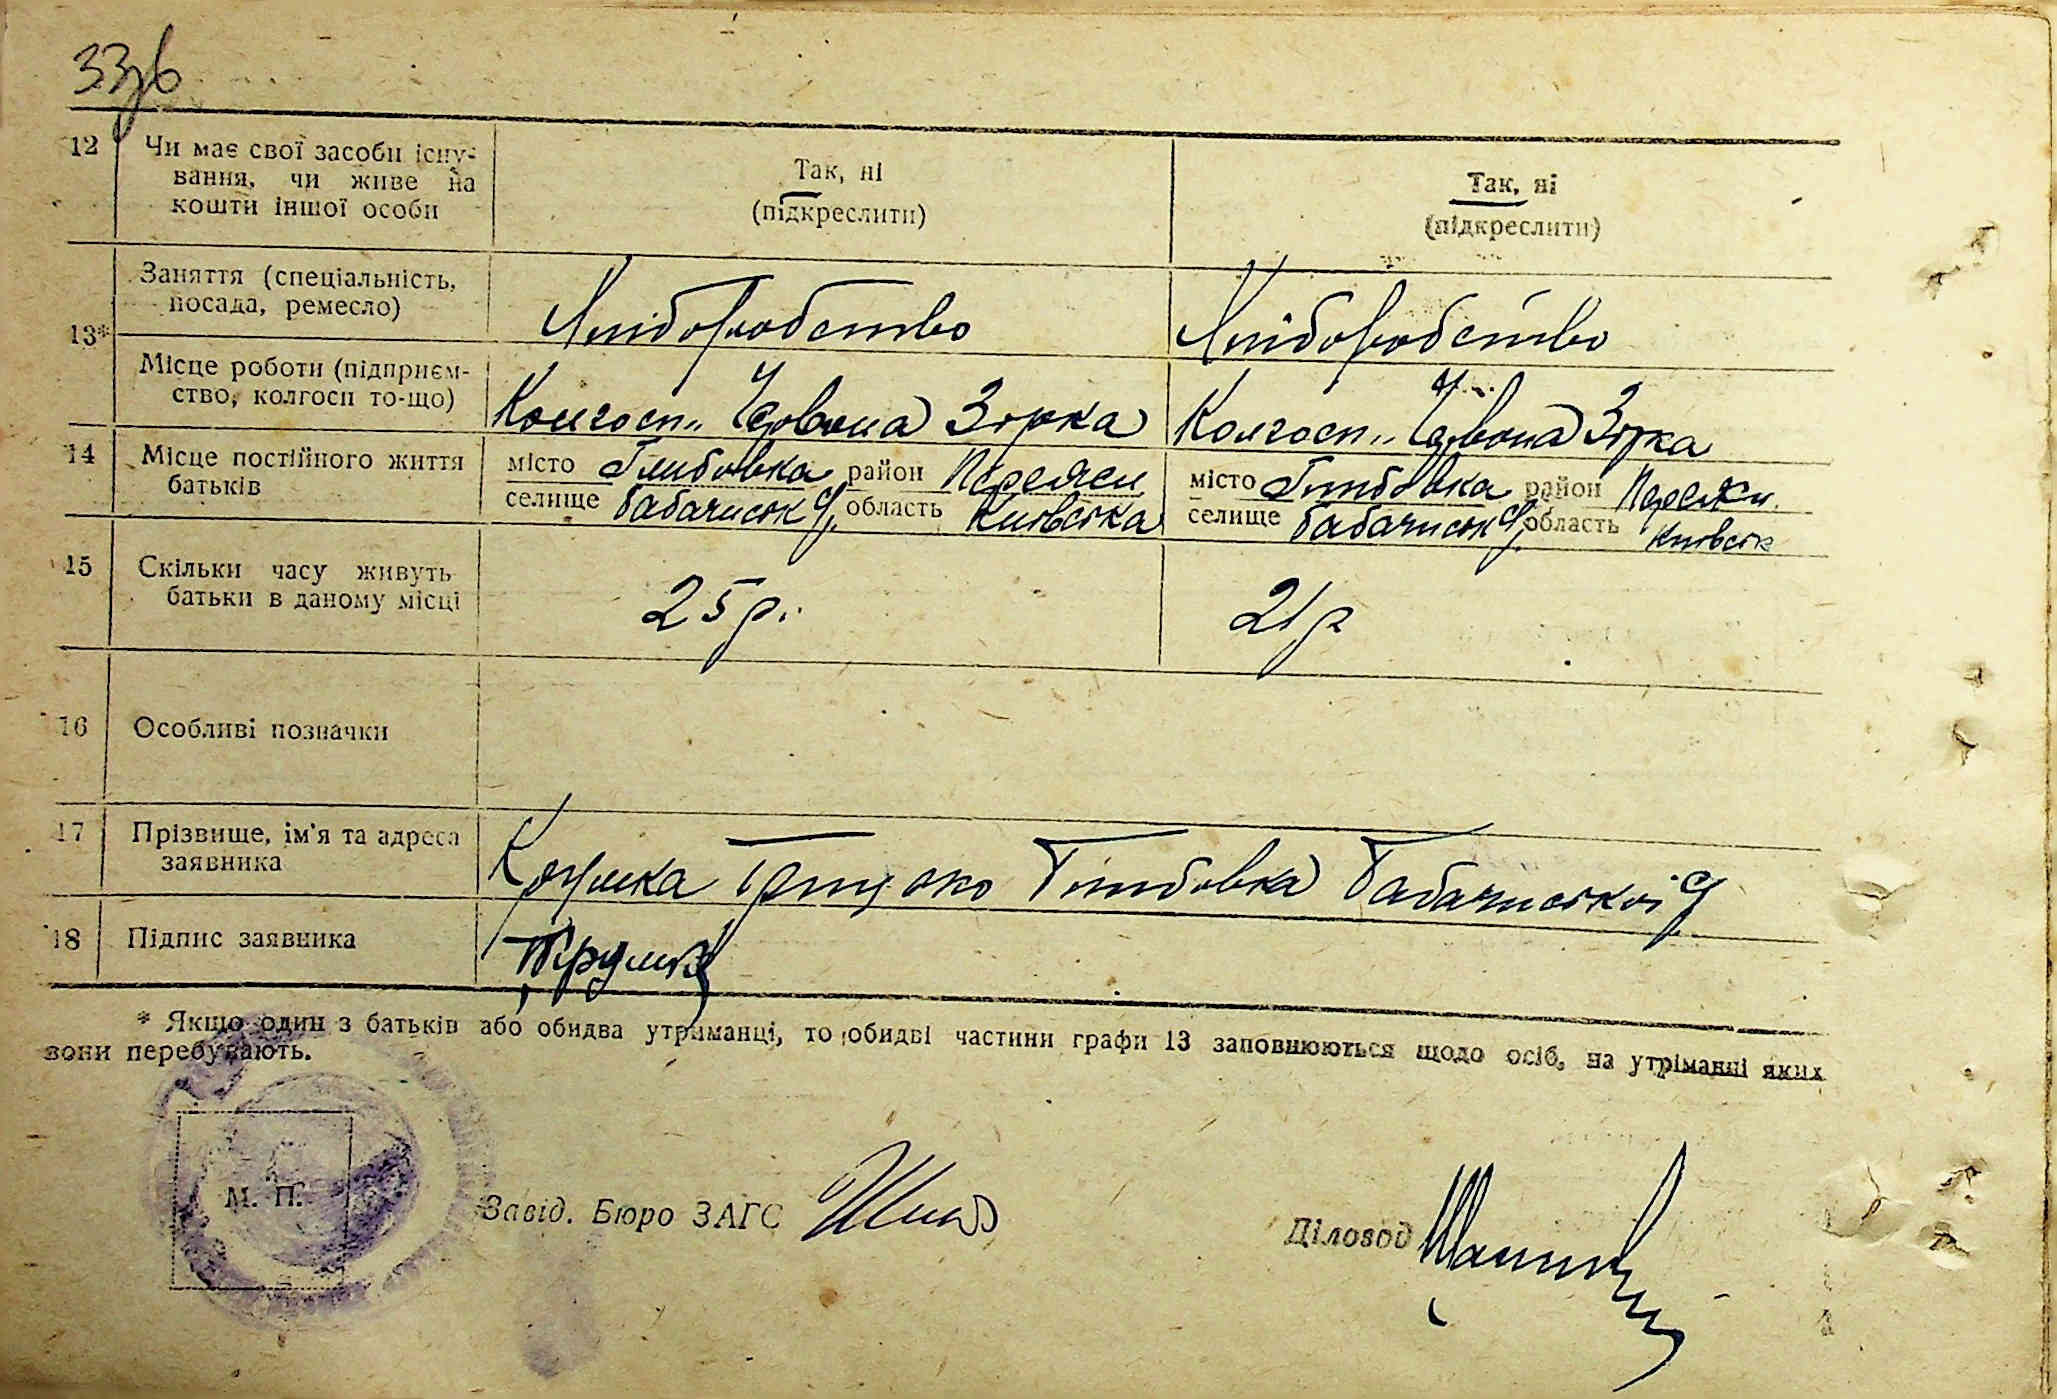 33зв
12 Чи має свої засоби існу-
вання, чи живе на
кошти іншої особи
Так, ні
(підкреслити)
Так, ні
(підкреслити)
13* Заняття (спеціальність,
посада, ремесло)
Хліборобство
Хліборобство
Місце роботи (підприєм-
ство, колгосп то-що)
Колгосп „Червона Зірка
Колгосп „Червона Зірка
14 Місце постійного життя
батьків
місто Глибовка район Переяси
селище бабачиськ область Київська
місто Глибовка район Переяки
селище бабачиськ область Київськ
15 Скільки часу живуть
батьки в даному місці
25 р.
21 р
16 Особливі позначки
17 Прізвище, ім'я та адреса
заявника
Глибовка
18 Підпис заявника
* Якщо один з батьків або обидва утриманці, то обидві частини графи 13 заповнюються щодо осіб, на утріманні яких
вони перебувають.
М. П.
Завід. Бюро ЗАГС
Діловод